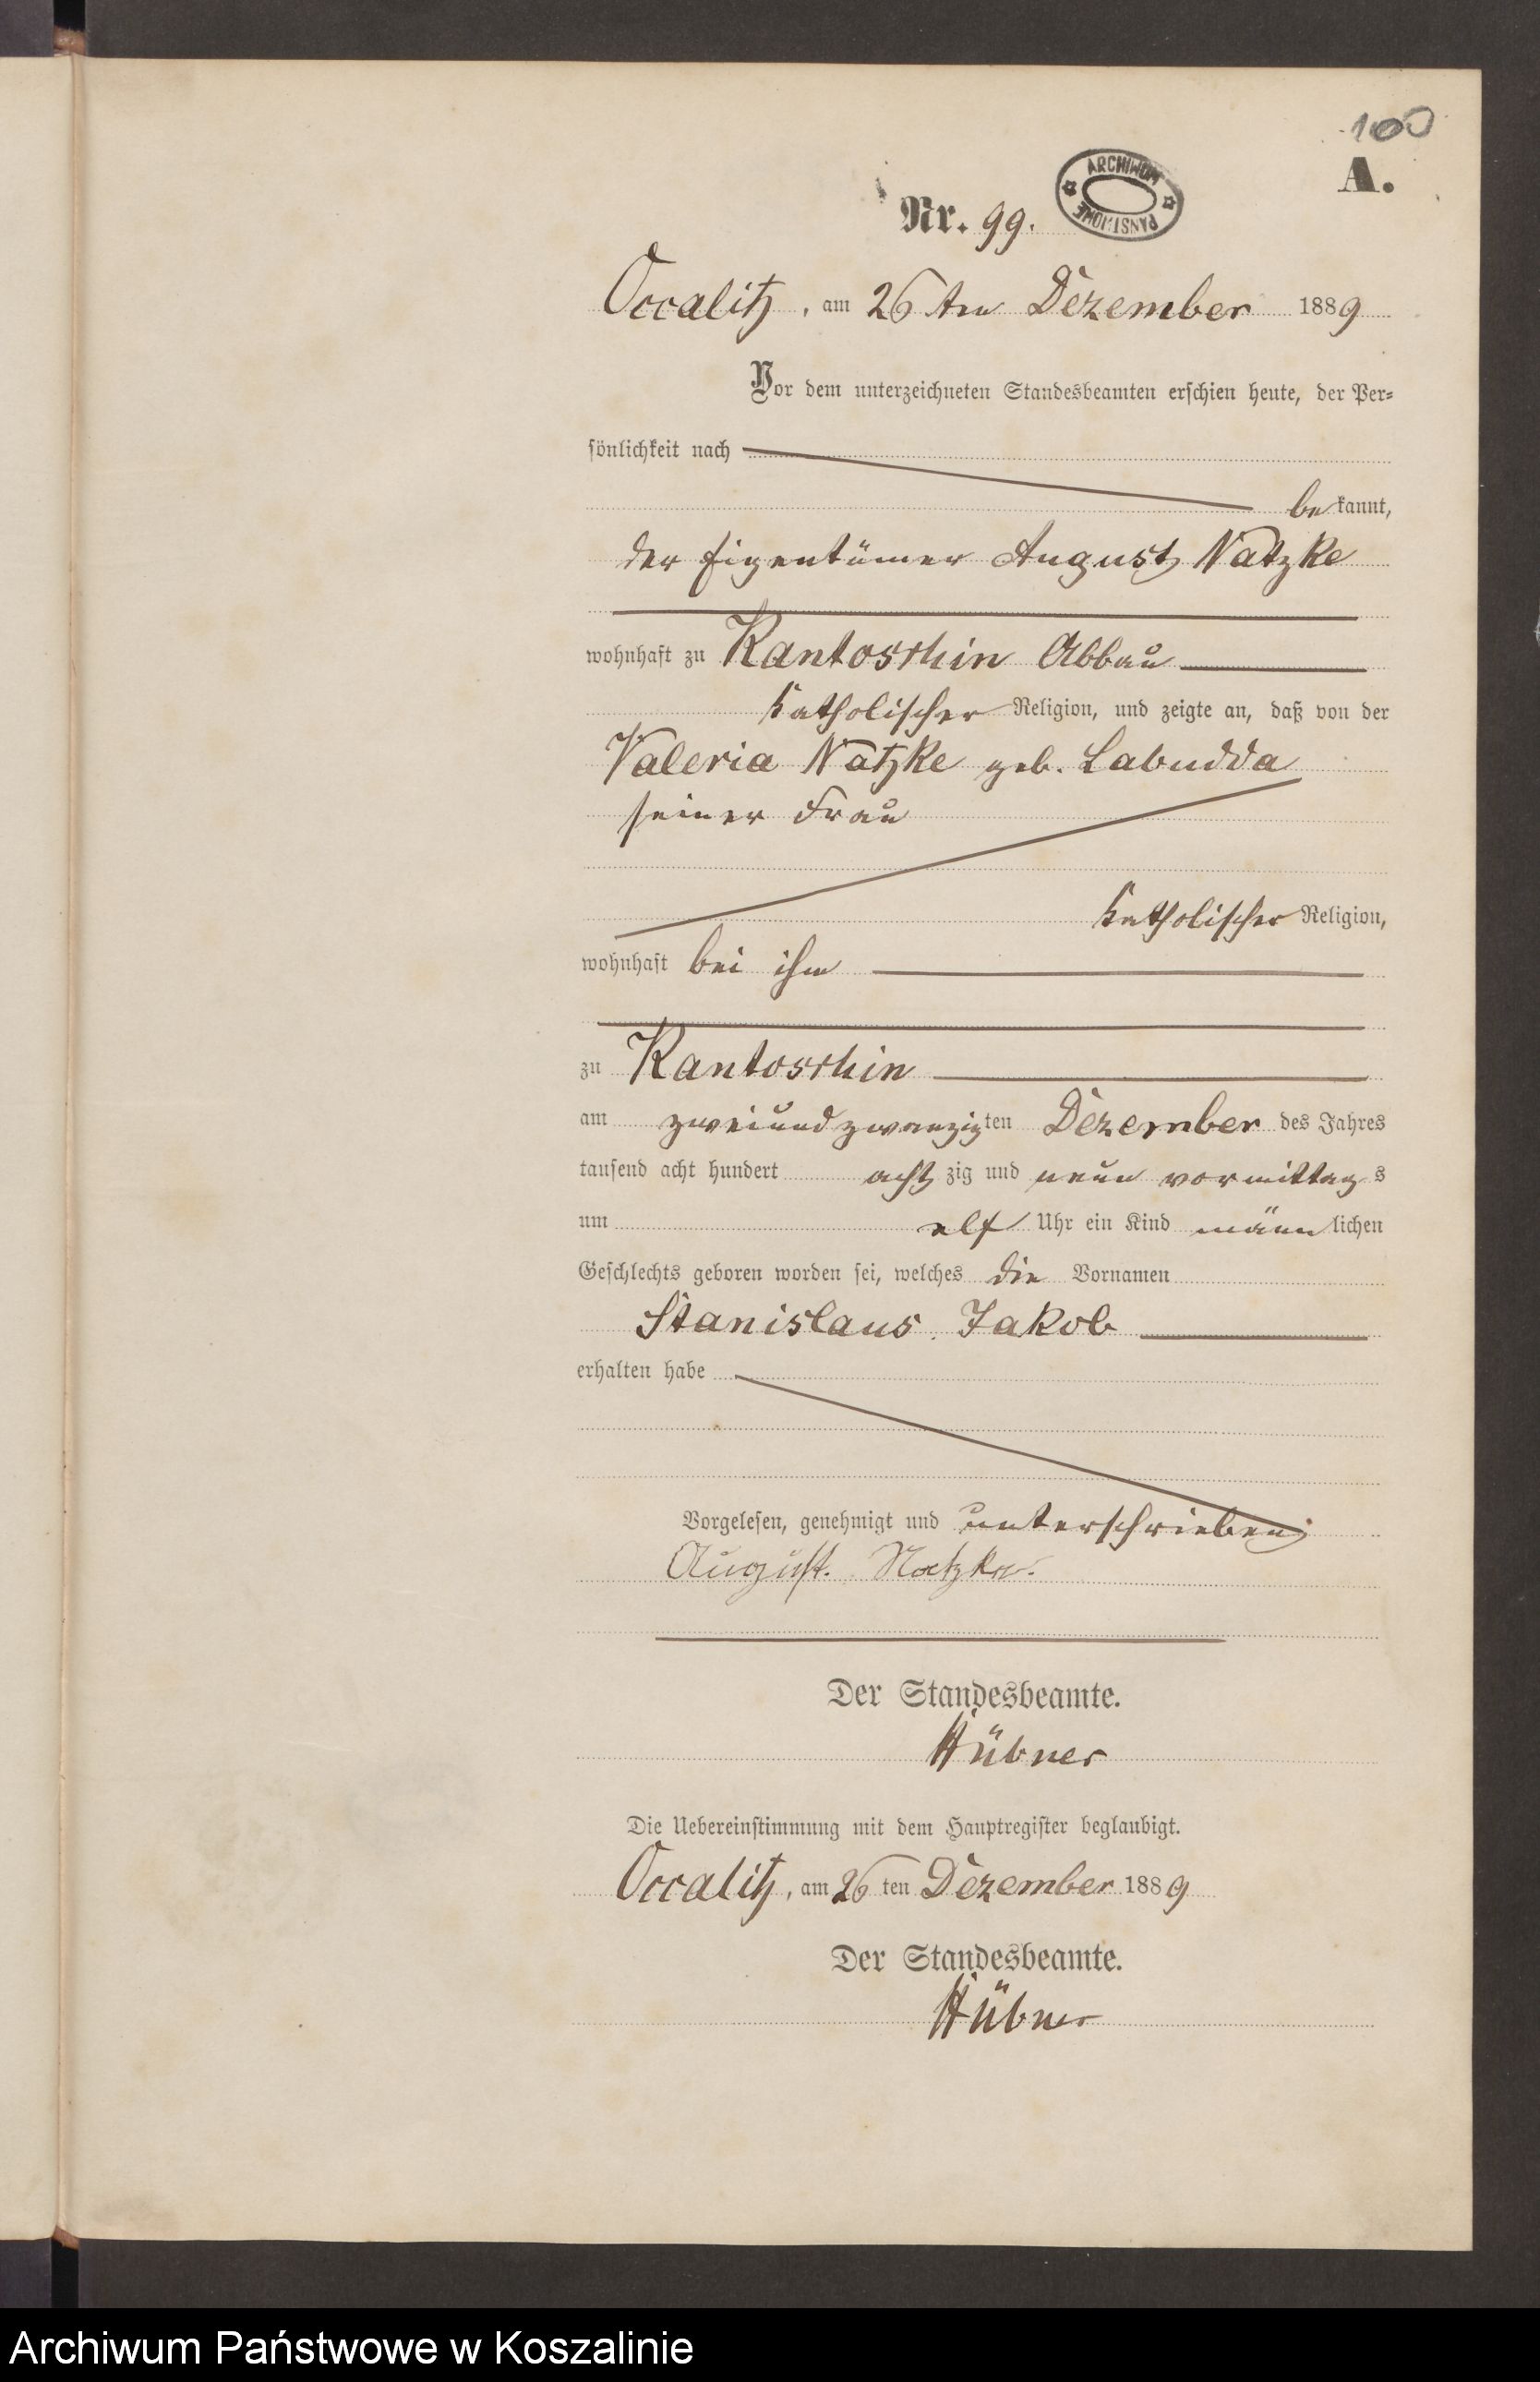 100
A.
ARCHIWUM PAŃSTWOWE
Nr. 99.
Occalitz, am 26 ten Dezember 1889
Vor dem unterzeichneten Standesbeamten erschien heute, der Per-
sönlichkeit nach
be kannt,
der Eigentümer August Natzke
wohnhaft zu Kantoschin Abbau
katholischer Religion, und zeigte an, daß von der
Valeria Natzke geb. Labudda
seiner Frau
katholischer Religion,
wohnhaft bei ihm
zu Kantoschin
am zweiundzwanzig ten Dezember des Jahres
tausend acht hundert acht zig und neun vormittag s
um elf Uhr ein Kind männ lichen
Geschlechts geboren worden sei, welches die Vornamen
Stanislaus Jakob
erhalten habe
Vorgelesen, genehmigt und unterschrieben
August. Natzke.
Der Standesbeamte.
Hübner
Die Uebereinstimmung mit dem Hauptregister beglaubigt.
Occalitz, am 26 ten Dezember 1889
Der Standesbeamte.
Hübner
Archiwum Państwowe w Koszalinie